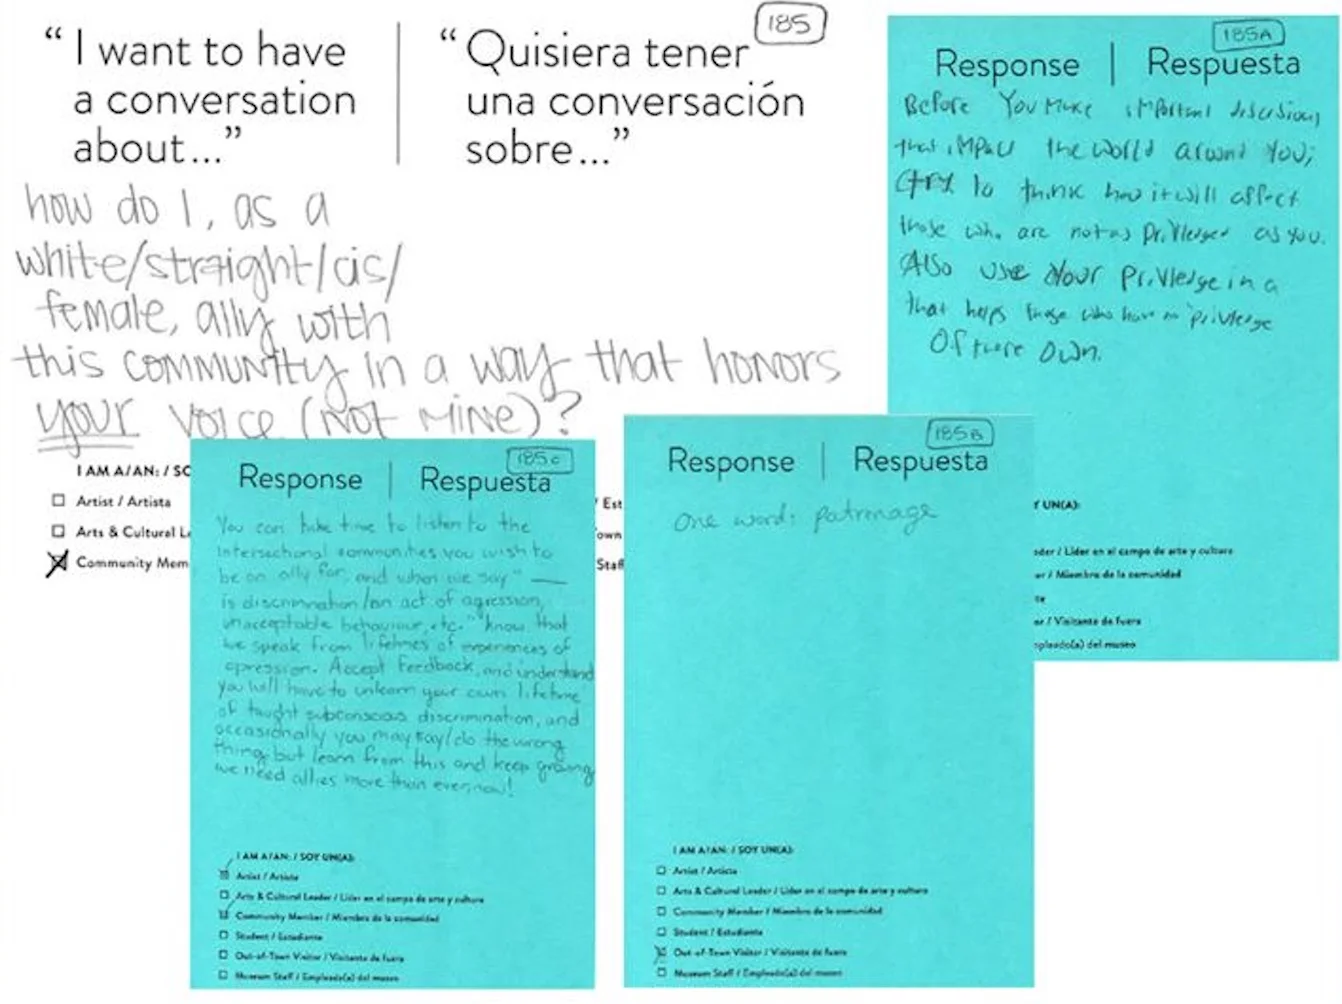 185
“ I want to have
a conversation
about...”
“ Quisiera tener
una conversación
sobre...”
how do I, as a
white/straight/cis/
female, ally with
this community in a way that honors
your voice (not mine)?
I AM A/AN: / SO
Artist / Artista
Arts & Cultural Le
Community Mem
/ Est
own
Staf
185A
Response | Respuesta
Before You Make important discisions
that impact the world around you;
try to think how it will affect
those who are not as Privledged as you.
Also use your Privledge in a
that helps those who have no privledge
Of there Own.
Y UN(A):
der / Líder en el campo de arte y cultura
er / Miembro de la comunidad
te
or / Visitante de fuera
mpleado(a) del museo
185c
Response | Respuesta
You can take time to listen to the
intersectional communities you wish to
be an ally for, and when we say "——
is discrimination/an act of agression,
unacceptable behaviour, etc." know that
we speak from lifetimes of experiences of
opression. Accept Feedback, and understand
you will have to unlearn your own lifetime
of taught subconscious discrimination, and
occasionally you may say/do the wrong
thing, but learn from this and keep growing
we need allies more than ever, now!
I AM A/AN: / SOY UN(A):
Artist / Artista
Arts & Cultural Leader / Líder en el campo de arte y cultura
Community Member / Miembro de la comunidad
Student / Estudiante
Out-of-Town Visitor / Visitante de fuera
Museum Staff / Empleado(a) del museo
185B
Response | Respuesta
One word: patronage
I AM A/AN: / SOY UN(A):
Artist / Artista
Arts & Cultural Leader / Líder en el campo de arte y cultura
Community Member / Miembro de la comunidad
Student / Estudiante
Out-of-Town Visitor / Visitante de fuera
Museum Staff / Empleado(a) del museo